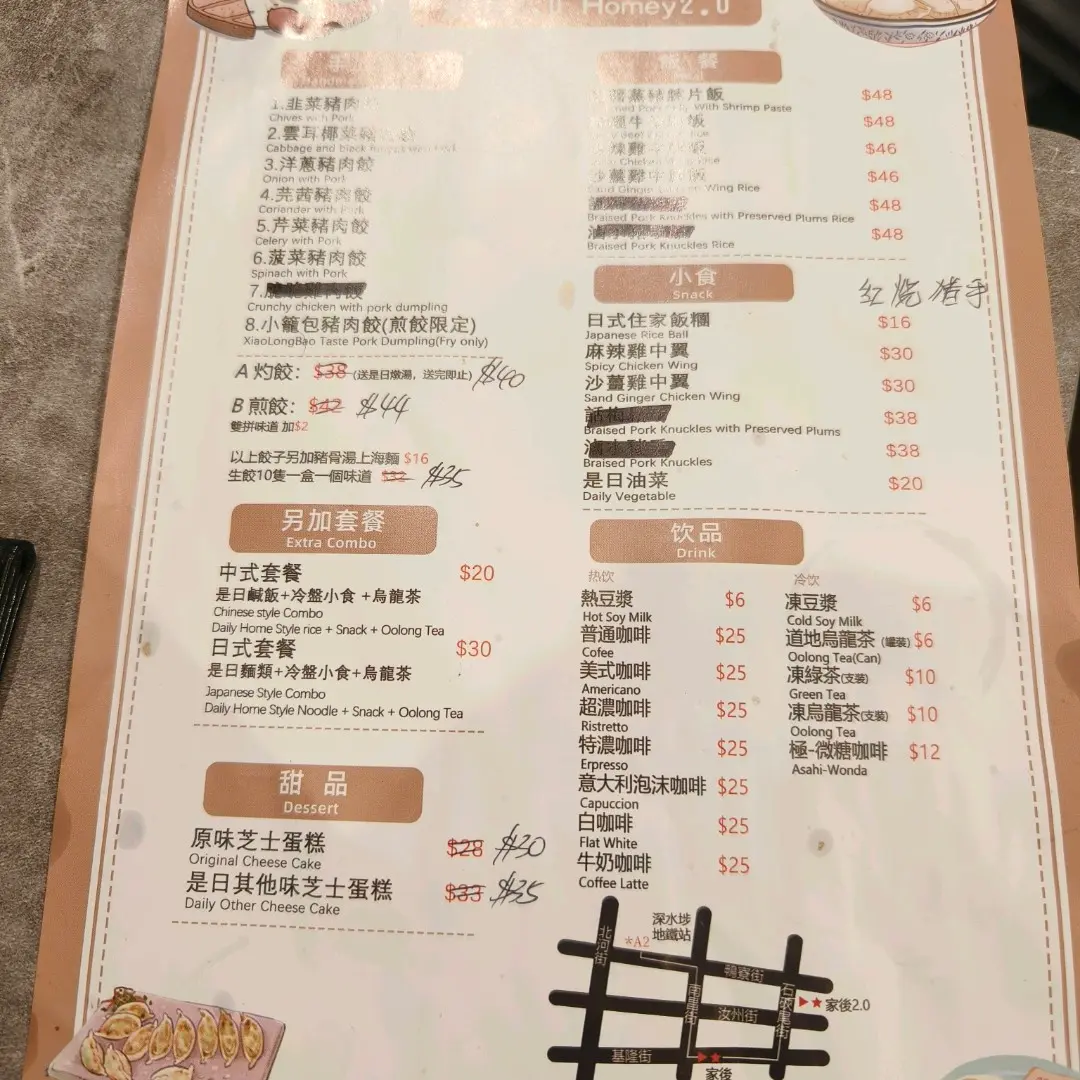 Homey2.0
1.韭菜豬肉
Chives with Pork
2.雲耳椰菜
Cabbage and black
3.洋蔥豬肉餃
Onion with Pork
4.芫茜豬肉餃
Coriander with Pork
5.芹菜豬肉餃
Celery with Pork
6.菠菜豬肉餃
Spinach with Pork
7.
Crunchy chicken with pork dumpling
8.小籠包豬肉餃(煎餃限定)
XiaoLongBao Taste Pork Dumpling(Fry only)
A 灼餃: $38 (送是日燉湯，送完即止) $40
B 煎餃: $42 $44
雙拼味道 加$2
以上餃子另加豬骨湯上海麵 $16
生餃10隻一盒一個味道 $32 $35
另加套餐
Extra Combo
中式套餐 $20
是日鹹飯+冷盤小食 +烏龍茶
Chinese style Combo
Daily Home Style rice + Snack + Oolong Tea
日式套餐 $30
是日麵類+冷盤小食+烏龍茶
Japanese Style Combo
Daily Home Style Noodle + Snack + Oolong Tea
甜 品
Dessert
原味芝士蛋糕 $28 $30
Original Cheese Cake
是日其他味芝士蛋糕 $33 $35
Daily Other Cheese Cake
飯 餐
片飯 $48
With Shrimp Paste
飯 $48
$46
$46
Sand Ginger Chicken Wing Rice
$48
Braised Pork Knuckles with Preserved Plums Rice
$48
Braised Pork Knuckles Rice
小食
Snack
红烧猪手
日式住家飯糰 $16
Japanese Rice Ball
麻辣雞中翼 $30
Spicy Chicken Wing
沙薑雞中翼 $30
Sand Ginger Chicken Wing
話梅 $38
Braised Pork Knuckles with Preserved Plums
$38
Braised Pork Knuckles
是日油菜 $20
Daily Vegetable
饮品
Drink
热饮
熱豆漿 $6
Hot Soy Milk
普通咖啡 $25
Cofee
美式咖啡 $25
Americano
超濃咖啡 $25
Ristretto
特濃咖啡 $25
Erpresso
意大利泡沫咖啡 $25
Capuccion
白咖啡 $25
Flat White
牛奶咖啡 $25
Coffee Latte
冷饮
凍豆漿 $6
Cold Soy Milk
道地烏龍茶 (罐裝) $6
Oolong Tea(Can)
凍綠茶(支裝) $10
Green Tea
凍烏龍茶(支裝) $10
Oolong Tea
極-微糖咖啡 $12
Asahi-Wonda
深水埗
地鐵站
*A2
北河街
鴨寮街
南昌街
石硤尾街
汝州街
家後2.0
基隆街
家後